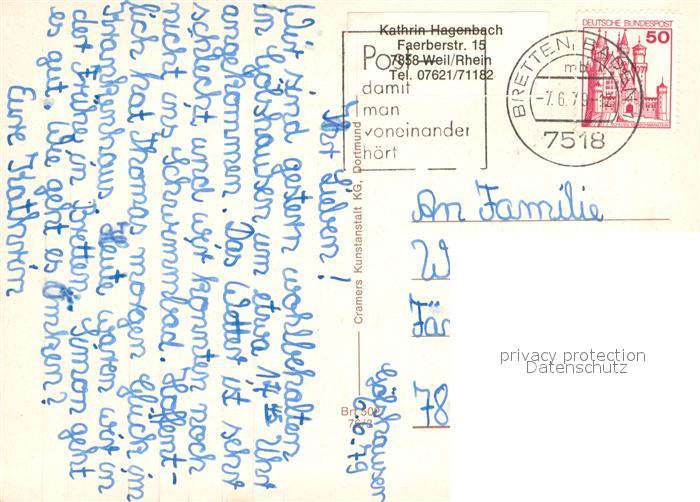 Gölshausen
6.6.79
Ihr Lieben!
Wir sind gestern wohlbehalten
in Gölshausen um etwa 17 Uhr
angekommen. Das Wetter ist sehr
schlecht und wir konnten noch
nicht ins Schwimmbad. Hoffent-
lich hat Thomas morgen Glück im
Krankenhaus. Heute waren wir in
der Frühe in Bretten. Simon geht
es gut. Wie geht es Omken?
Eure Kathrin
Kathrin Hagenbach
Faerberstr. 15
7858 Weil/Rhein
Tel. 07621/71182
Post
damit
man
voneinander
hört
BRETTEN, BADEN
mb
-7.6.79
7518
DEUTSCHE BUNDESPOST
50
Cramers Kunstanstalt KG, Dortmund
An Familie
W
78
privacy protection
Datenschutz